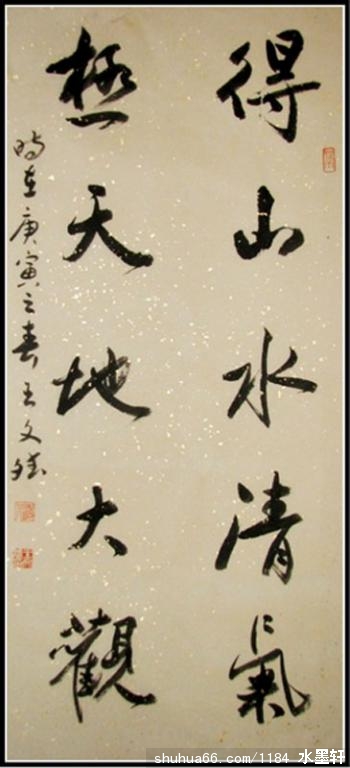 得山水清氣
極天地大觀
時在庚寅之春王文繡
shuhua66.com/1184 水墨轩